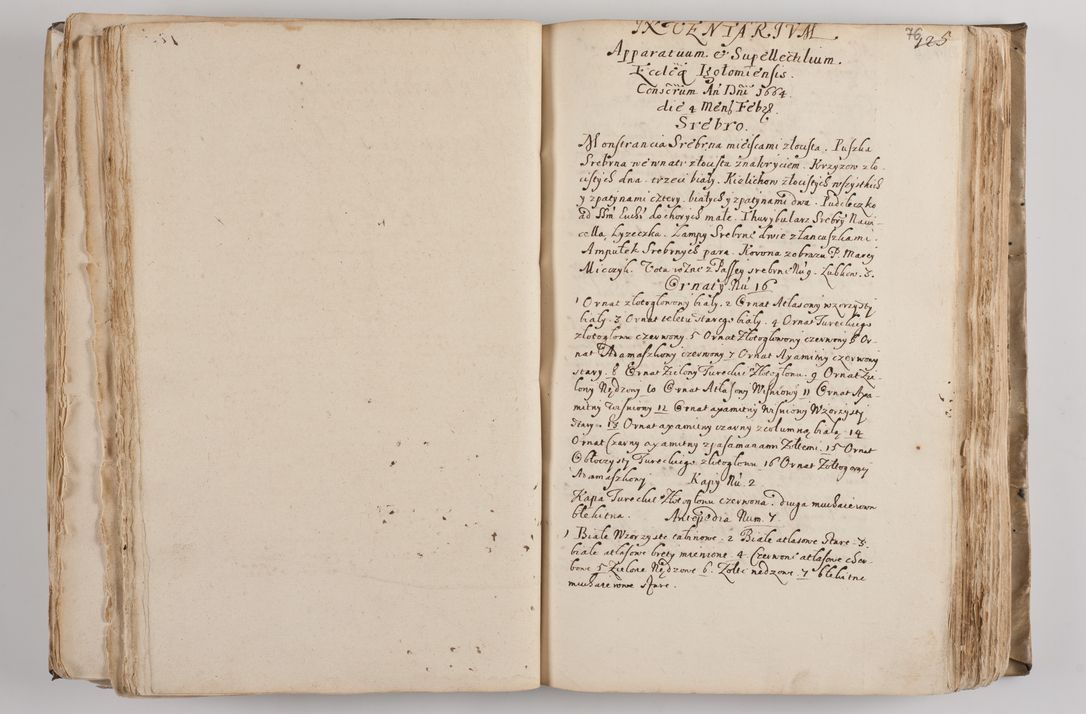 INVENTARIVM
76
125
Apparatuum & Supellectilium.
Ecclae Igołomiensis.
Conscrium An Dni 1664.
die 4 Mens Febr.
Srebro.
Monstrancia Srebrna mieiscami złocista. Puszka
Srebrna wewnątr złocista z nakryciem. Krzyzow zło-
cistych dwa. trzeci biały. Kielichow złocistych wszystkich
y z patynami cztery. białych y z patynami dwa. Pudełeczko
ad SSm Euchs do chorych małe. Thurybularz Srebrny Navi-
cella, Łyzeczka. Lampy Srebrne dwie z łancuszkami.
Ampułek Srebrnych para. Korona z obrazu P. Maryi
Mieczyk. Vota rożne z Passyey srebrne Nu 9. Lubkow. 3.
Ornaty Nu 16
1 Ornat złotogłowowy biały. 2 Ornat Atlasowy wzorzysty
biały. 3 Ornat teletu starego biały. 4 Ornat Tureckiego
złotogłowu czerwony. 5 Ornat Złotogłowowy czerwony 6 Or-
nat Adamaszkowy czerwony 7 Ornat Axamitny czerwony
stary. 8 Ornat Zielony Tureckie° złotogłowu. 9 Ornat Zie-
lony Nędzowy 10 Ornat Atlasowy Wisniowy 11 Ornat Axa-
mitny Wisniowy 12 Ornat axamitny Wisniowy Wzorzysty
Stary. 13 Ornat axamitny czarny z columną białą. 14
Ornat Czarny axamitny z pasamanami Zołtemi. 15 Ornat
Obłoczysty Tureckiego złotogłowu 16 Ornat Zołtogorący
Adamaszkowy Kapy Nu. 2
Kapa Tureckie° złotogłowu czerwona. druga muchaierowa
błekitna. Antepedia Num. 7.
1 Białe Wzorzyste 2 Białe atłasowe Stare. 3.
białe atłasowe 4. Czerwone atłasowe
5 Zielone Nędzowe 6. Zołte nędzowe 7 błekitne
muchaierowe Stare.